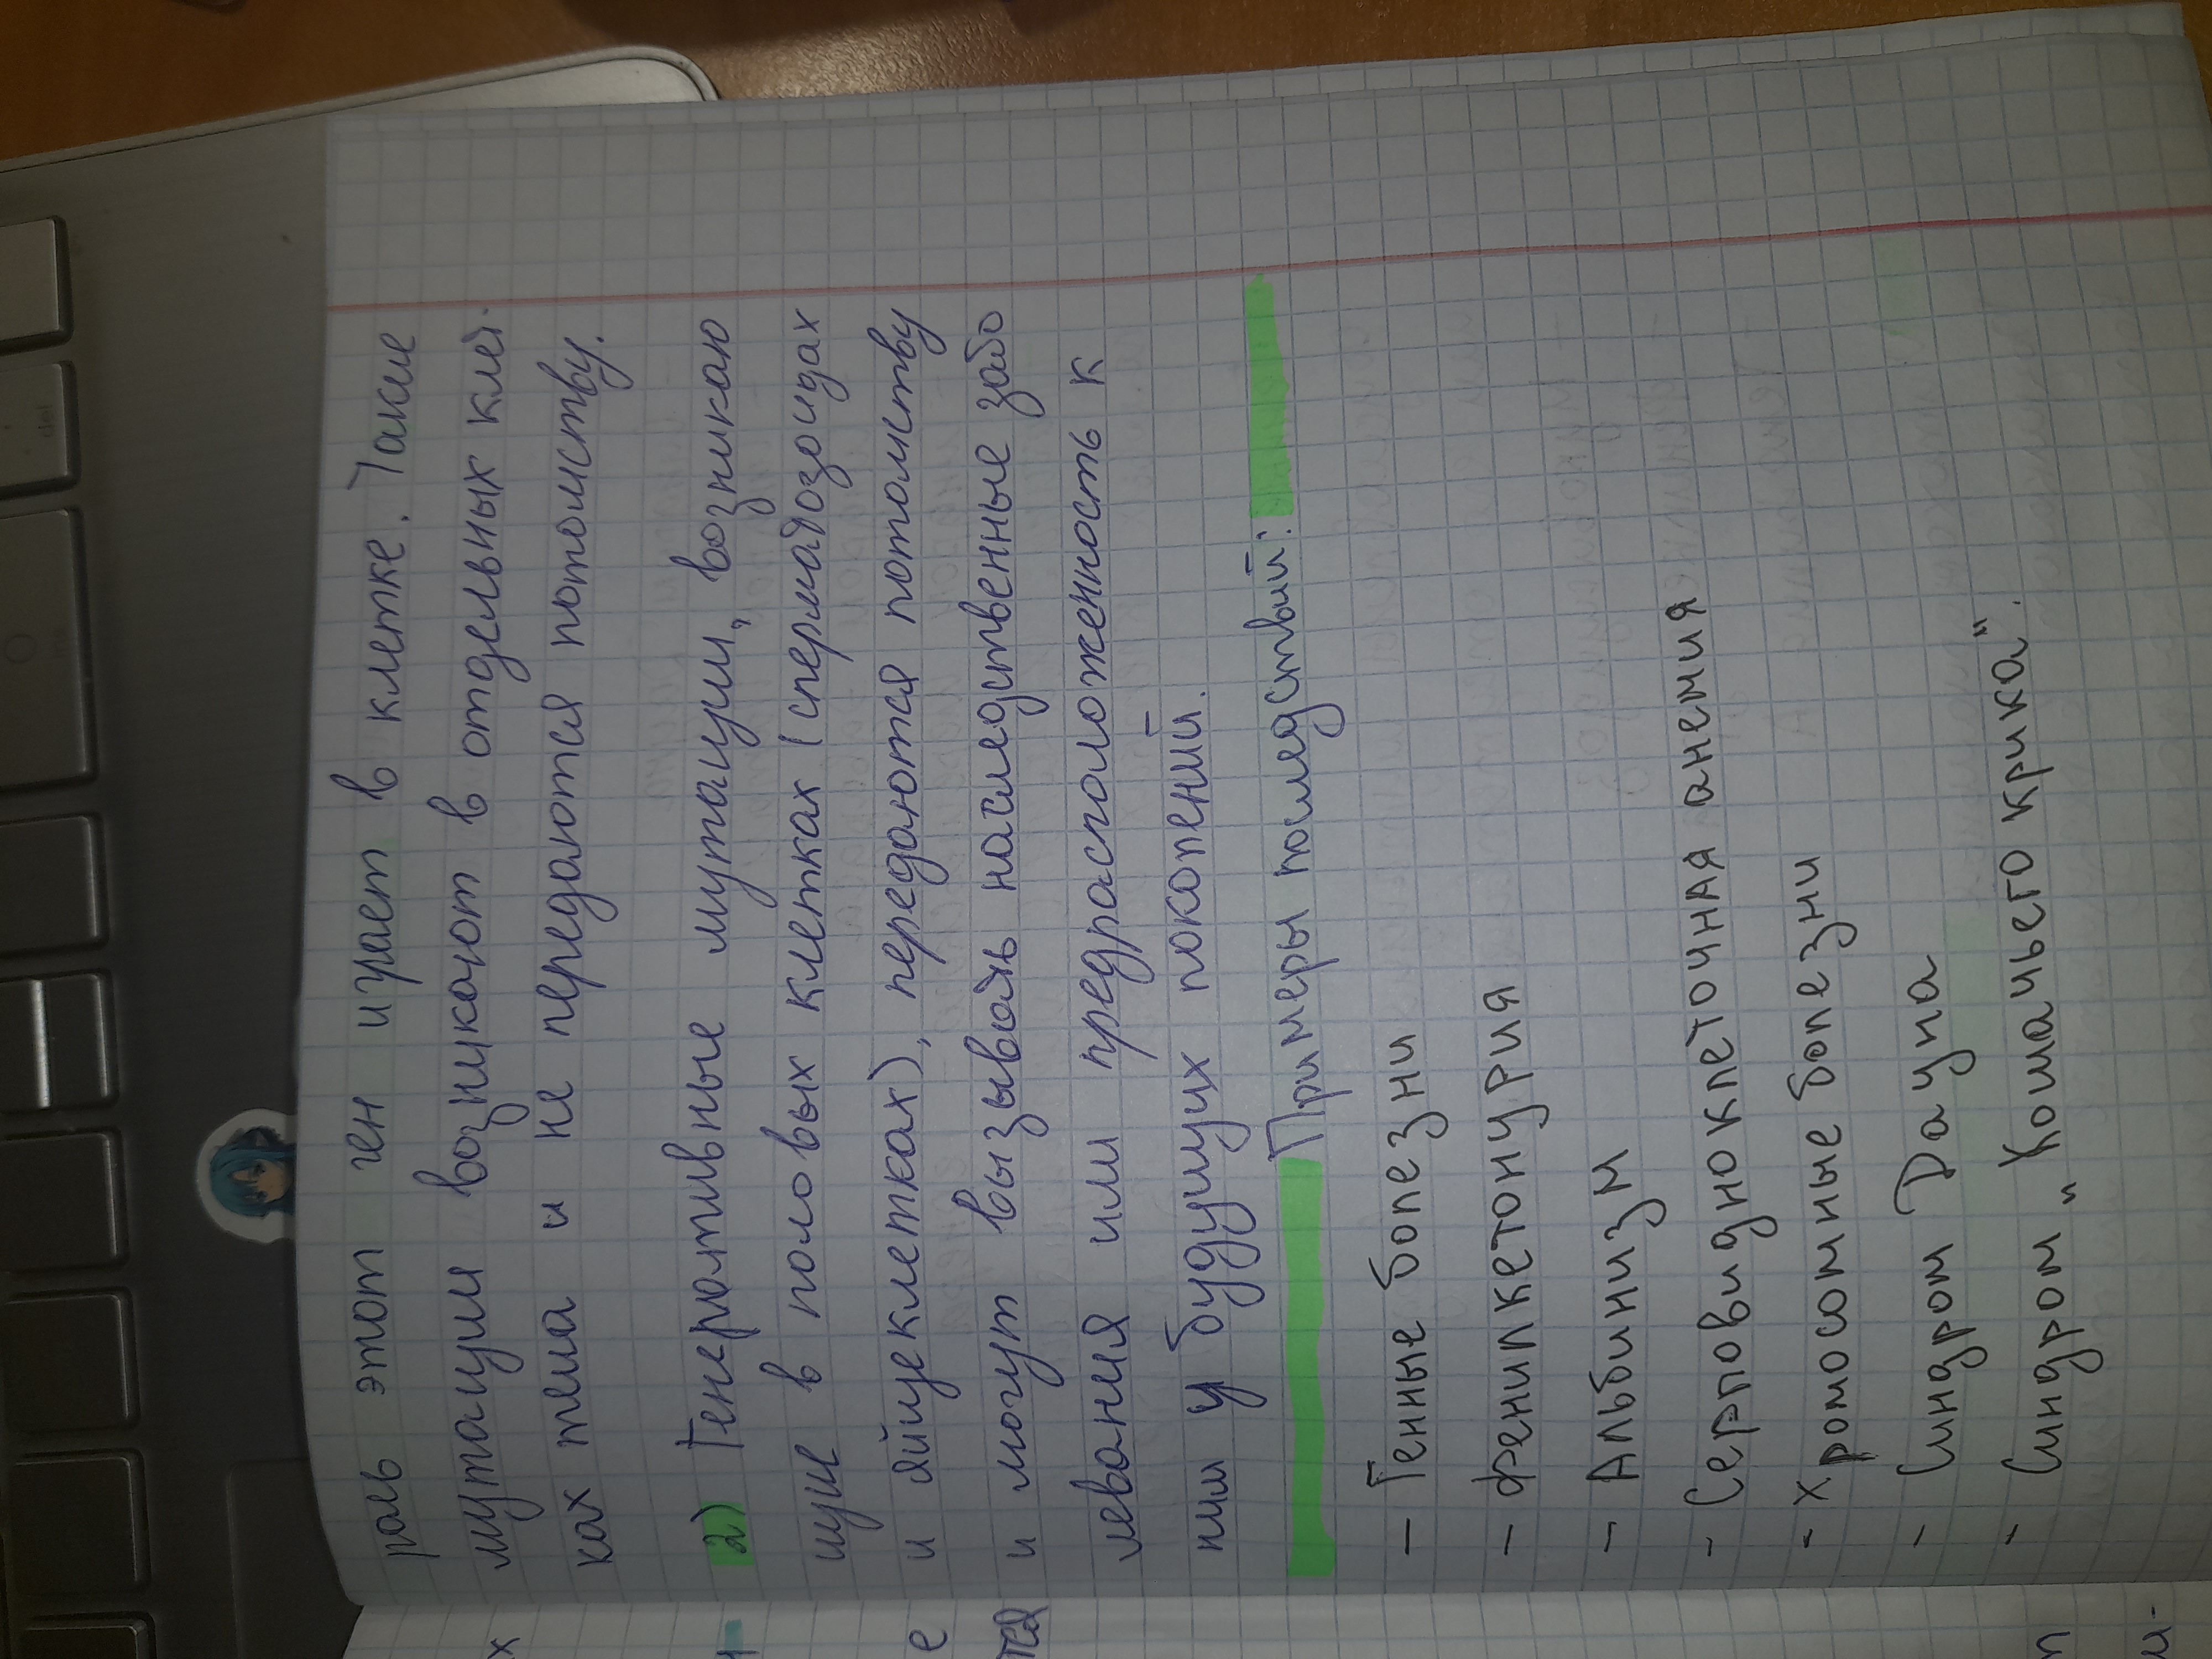 роль этот ген играет в клетке. Такие
мутации возникают в отдельных клет-
ках тела и не передаются потомству.
2) Генеративные мутации, возникаю
щие в половых клетках (сперматозоидах
и яйцеклетках), передаются потомству
и могут вызывать наследственные забо
левания или предрасположенность к
ним у будущих поколений.
Примеры последствий:
- Генные болезни
- Фенилкетонурия
- Альбинизм
- Серповидноклеточная анемия
- Хромосомные болезни
- Синдром Дауна
- Синдром „Кошачьего крика".